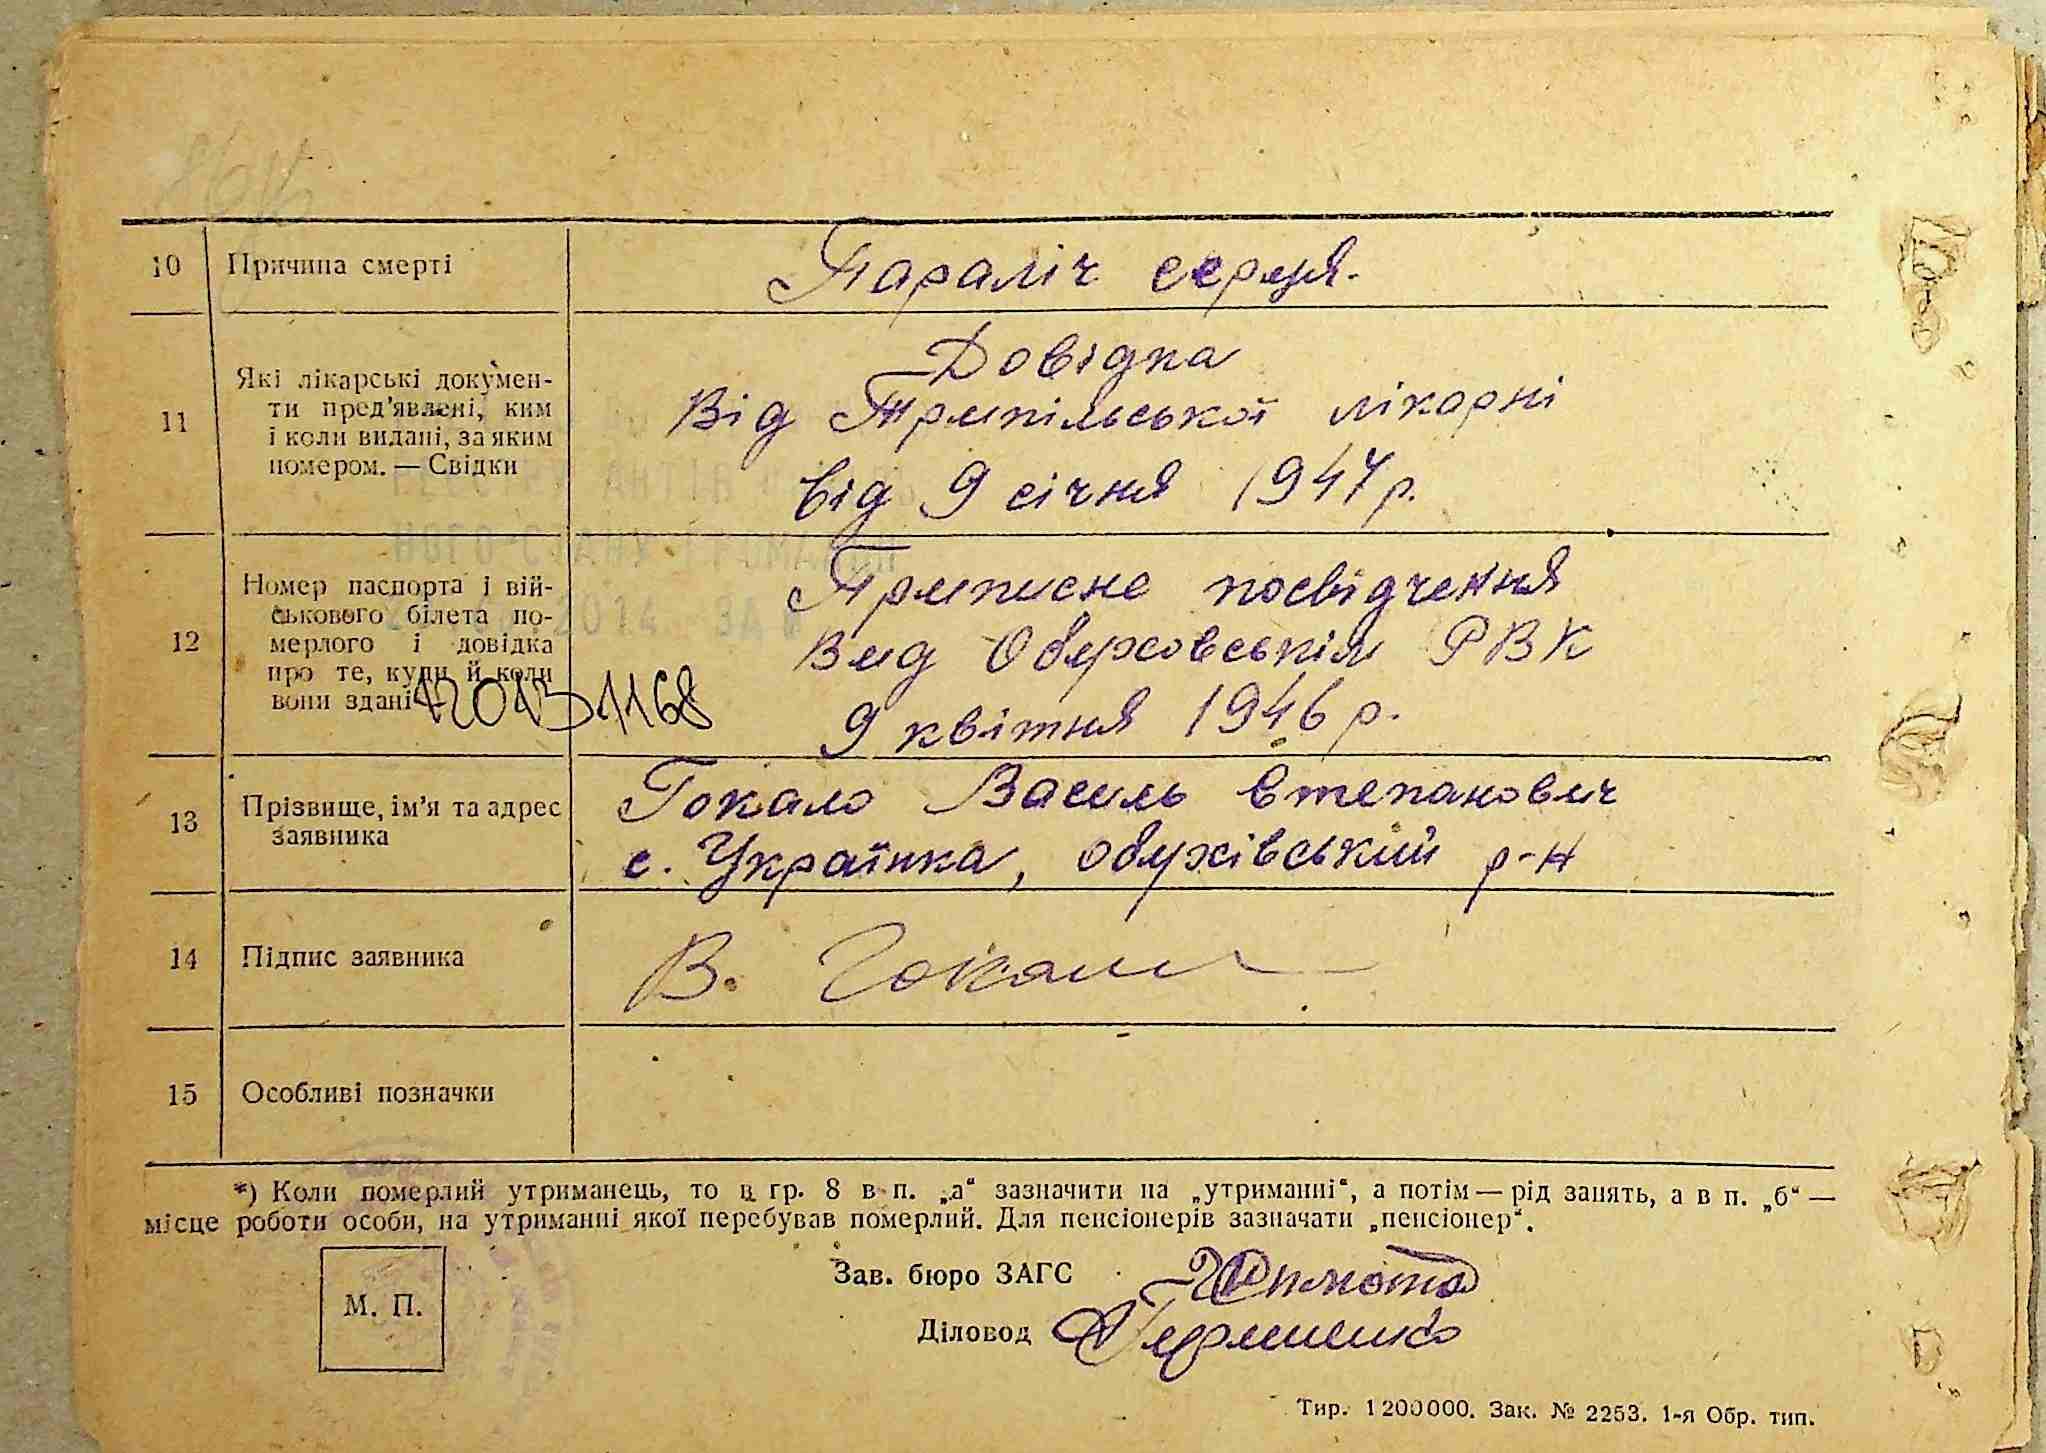 10 Причина смерті Параліч серця.
11 Які лікарські докумен-
ти пред'явлені, ким
і коли видані, за яким
номером. — Свідки
Довідка
Від Трипільської лікарні
від 9 січня 1947 р.
12 Номер паспорта і вій-
ськового білета по-
мерлого і довідка
про те, куди й коли
вони здані
Приписне посвідчення
Вид Обуховським РВК
9 квітня 1946 р.
13 Прізвище, ім'я та адрес
заявника
Гокало Василь Степанович
с. Українка, Обухівський р-н
14 Підпис заявника В. Гокало
15 Особливі позначки
*) Коли померлий утриманець, то в гр. 8 в п. „а“ зазначити на „утриманні“, а потім — рід занять, а в п. „б“ —
місце роботи особи, на утриманні якої перебував померлий. Для пенсіонерів зазначати „пенсіонер“.
М. П.
Зав. бюро ЗАГС
Діловод
Тир. 1200000. Зак. № 2253. 1-я Обр. тип.